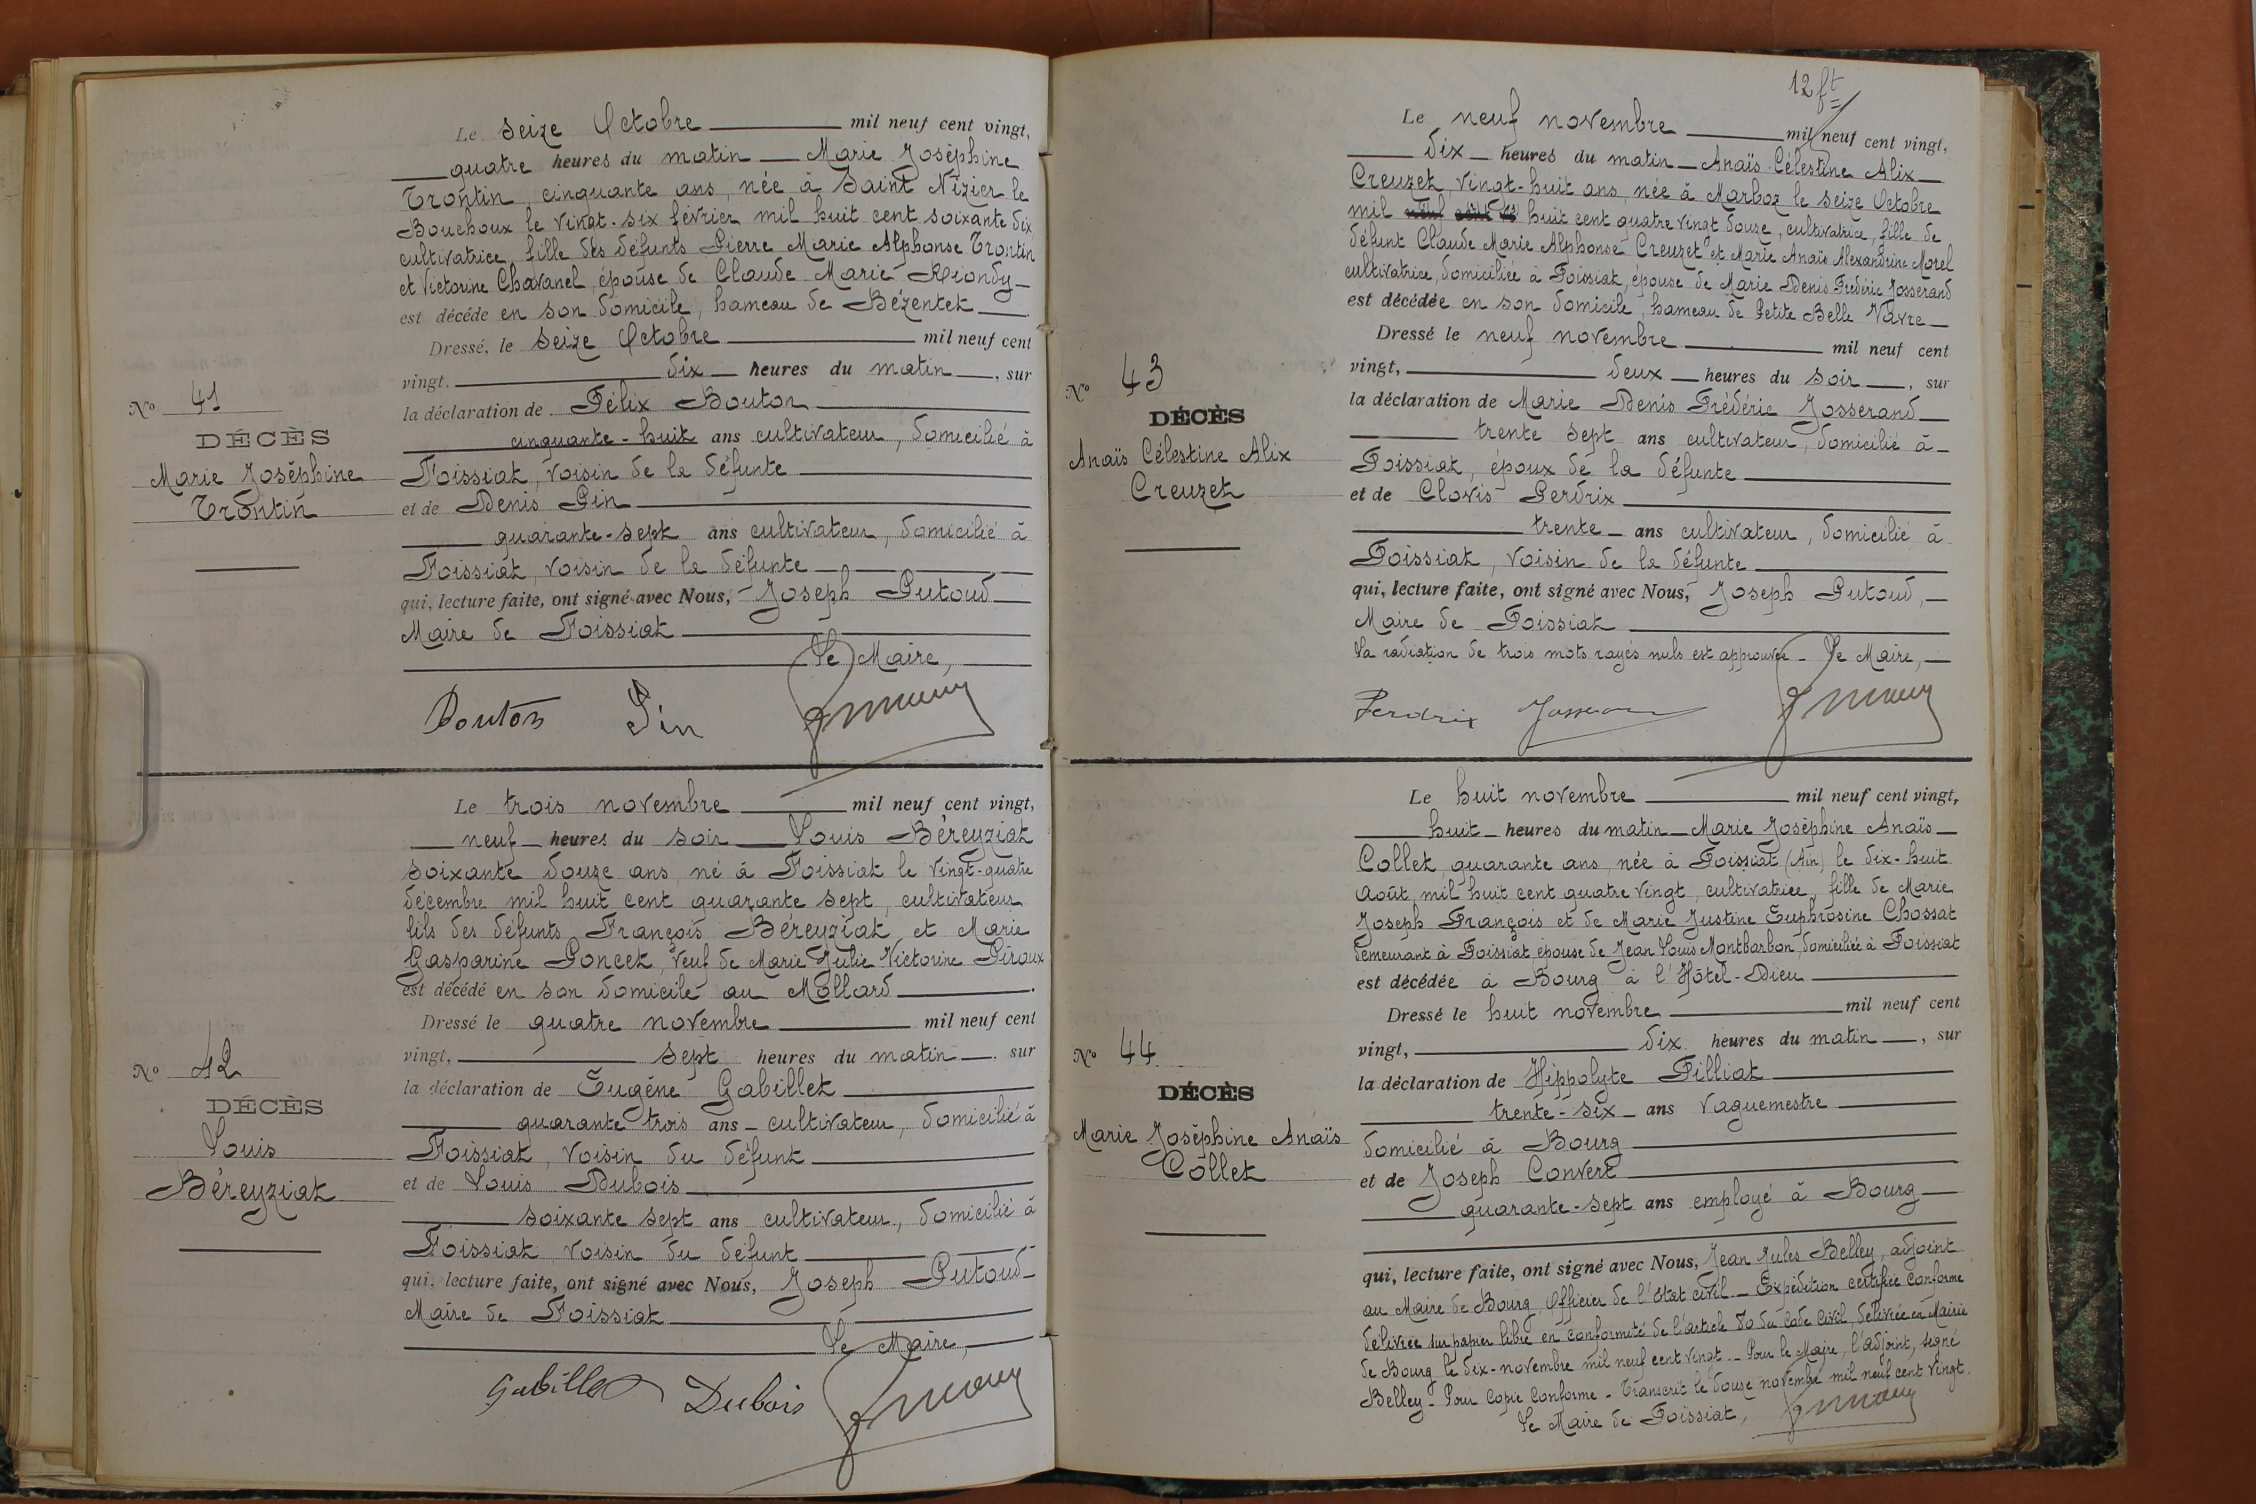 Le seize Octobre mil neuf cent vingt,
quatre heures du matin Marie Joséphine
Trontin, cinquante ans, née à Saint Nizier le
Bouchoux le vingt-six février mil huit cent soixante dix
cultivatrice, fille des défunts Pierre Marie Alphonse Trontin
et Victorine Chavanel, épouse de Claude Marie Riondy
est décédé en son domicile, hameau de Bézentet
Dressé, le seize Octobre mil neuf cent
vingt. dix heures du matin, sur
la déclaration de Félix Bouton
cinquante-huit ans cultivateur, domicilié à
Foissiat, voisin de la défunte
et de Denis Pin
quarante-sept ans cultivateur, domicilié à
Foissiat, voisin de la défunte
qui, lecture faite, ont signé avec Nous, Joseph Putoud
Maire de Foissiat
Le Maire,
Bouton Pin
No 41
DÉCÈS
Marie Joséphine
Trontin
Le trois novembre mil neuf cent vingt,
neuf heures du soir Louis Béreyziat
soixante douze ans, né à Foissiat le vingt-quatre
décembre mil huit cent quarante sept, cultivateur
fils des défunts François Béreyziat et Marie
Gasparine Poncet, veuf de Marie Julie Victorine Piroux
est décédé en son domicile au Mollard.
Dressé le quatre novembre mil neuf cent
vingt, sept heures du matin. sur
la déclaration de Eugène Gabillet
quarante trois ans cultivateur, domicilié à
Foissiat, voisin du défunt
et de Louis Dubois
soixante sept ans cultivateur, domicilié à
Foissiat voisin du défunt
qui, lecture faite, ont signé avec Nous, Joseph Putoud
Maire de Foissiat
Le Maire,
Gabillet Dubois
No 42
DÉCÈS
Louis
Béreyziat
12 ft
Le neuf novembre mil neuf cent vingt,
dix heures du matin Anaïs Célestine Alix
Creuzet, vingt-huit ans, née à Marboz le seize Octobre
mil neuf cent huit cent quatre vingt douze, cultivatrice, fille de
défunt Claude Marie Alphonse Creuzet et Marie Anaïs Alexandrine Morel
cultivatrice, domiciliée à Foissiat, épouse de Marie Denis Frédéric Josserand
est décédée en son domicile, hameau de Petite Belle Vavre
Dressé le neuf novembre mil neuf cent
vingt, deux heures du soir, sur
la déclaration de Marie Denis Frédéric Josserand
trente sept ans cultivateur, domicilié à
Foissiat, époux de la défunte
et de Clovis Perdrix
trente ans cultivateur, domicilié à
Foissiat, voisin de la défunte
qui, lecture faite, ont signé avec Nous, Joseph Putoud,
Maire de Foissiat
La radiation de trois mots rayés nuls est approuvée - Le Maire,
Perdrix Josserand
No 43
DÉCÈS
Anaïs Célestine Alix
Creuzet
Le huit novembre mil neuf cent vingt,
huit heures du matin Marie Joséphine Anaïs
Collet, quarante ans, née à Foissiat (Ain) le dix-huit
Août, mil huit cent quatre vingt, cultivatrice, fille de Marie
Joseph François et de Marie Justine Euphrosine Chossat
demeurant à Foissiat, épouse de Jean Louis Montbarbon, domiciliée à Foissiat
est décédée à Bourg à l'Hôtel-Dieu
Dressé le huit novembre mil neuf cent
vingt, dix heures du matin, sur
la déclaration de Hippolyte Filliat
trente-six ans vaguemestre
domicilié à Bourg
et de Joseph Convert
quarante-sept ans employé à Bourg
qui, lecture faite, ont signé avec Nous, Jean Jules Belley, adjoint
au Maire de Bourg, Officier de l'Etat civil - Expédition certifiée conforme
délivrée sur papier libre en conformité de l'article 80 du Code Civil, délivrée en Mairie
de Bourg le dix-novembre mil neuf cent vingt - Pour le Maire, l'adjoint, signé
Belley - Pour Copie Conforme - Transcrit le douze novembre mil neuf cent vingt.
Le Maire de Foissiat,
No 44
DÉCÈS
Marie Joséphine Anaïs
Collet